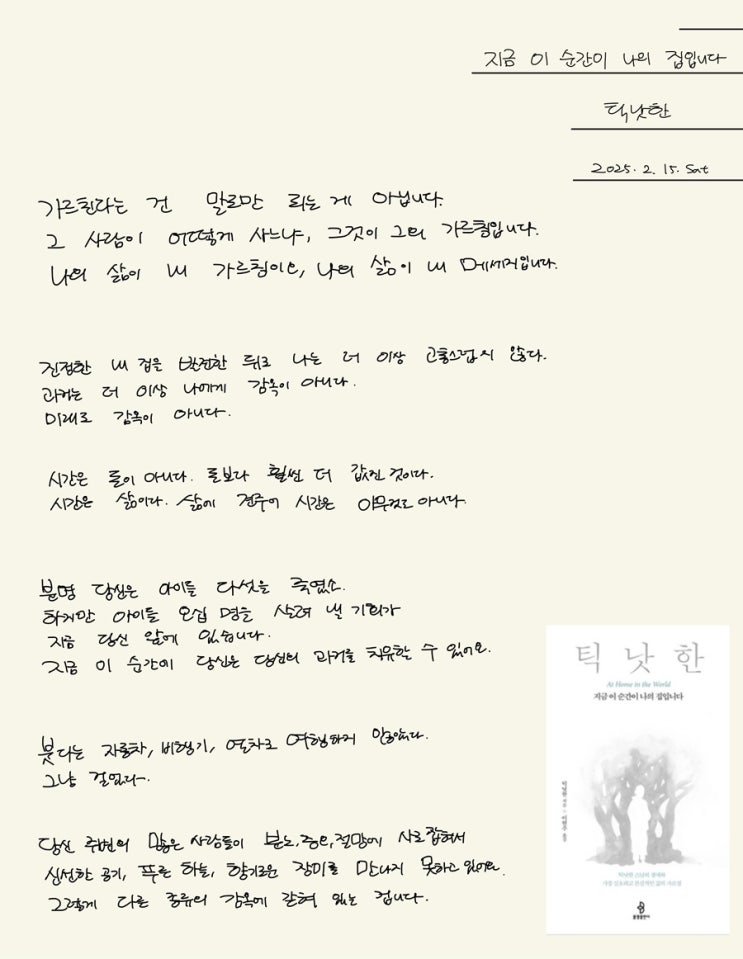 지금 이 순간이 나의 집입니다
틱낫한
2025. 2. 15. Sat
가르친다는 건 말로만 되는 게 아닙니다.
그 사람이 어떻게 사느냐, 그것이 그의 가르침입니다.
나의 삶이 내 가르침이요, 나의 삶이 내 메세지입니다.
진정한 내 집을 발견한 뒤로 나는 더 이상 고통스럽지 않다.
과거는 더 이상 나에게 감옥이 아니다.
미래도 감옥이 아니다.
시간은 돈이 아니다. 돈보다 훨씬 더 값진 것이다.
시간은 삶이다. 삶에 견주어 시간은 아무것도 아니다.
분명 당신은 아이들 다섯을 죽였소.
하지만 아이들 오십 명을 살려 낼 기회가
지금 당신 앞에 있습니다.
지금 이 순간에 당신은 당신의 과거를 치유할 수 있어요.
붓다는 자동차, 비행기, 열차로 여행하지 않았다.
그냥 걸었다.
당신 주변의 많은 사람들이 분노, 증오, 절망에 사로잡혀서
신선한 공기, 푸른 하늘, 향기로운 장미를 만나지 못하고 있어요.
그렇게 다른 종류의 감옥에 갇혀 있는 겁니다.
틱낫한
At Home in the World
지금 이 순간이 나의 집입니다
틱낫한 지음
불광출판사